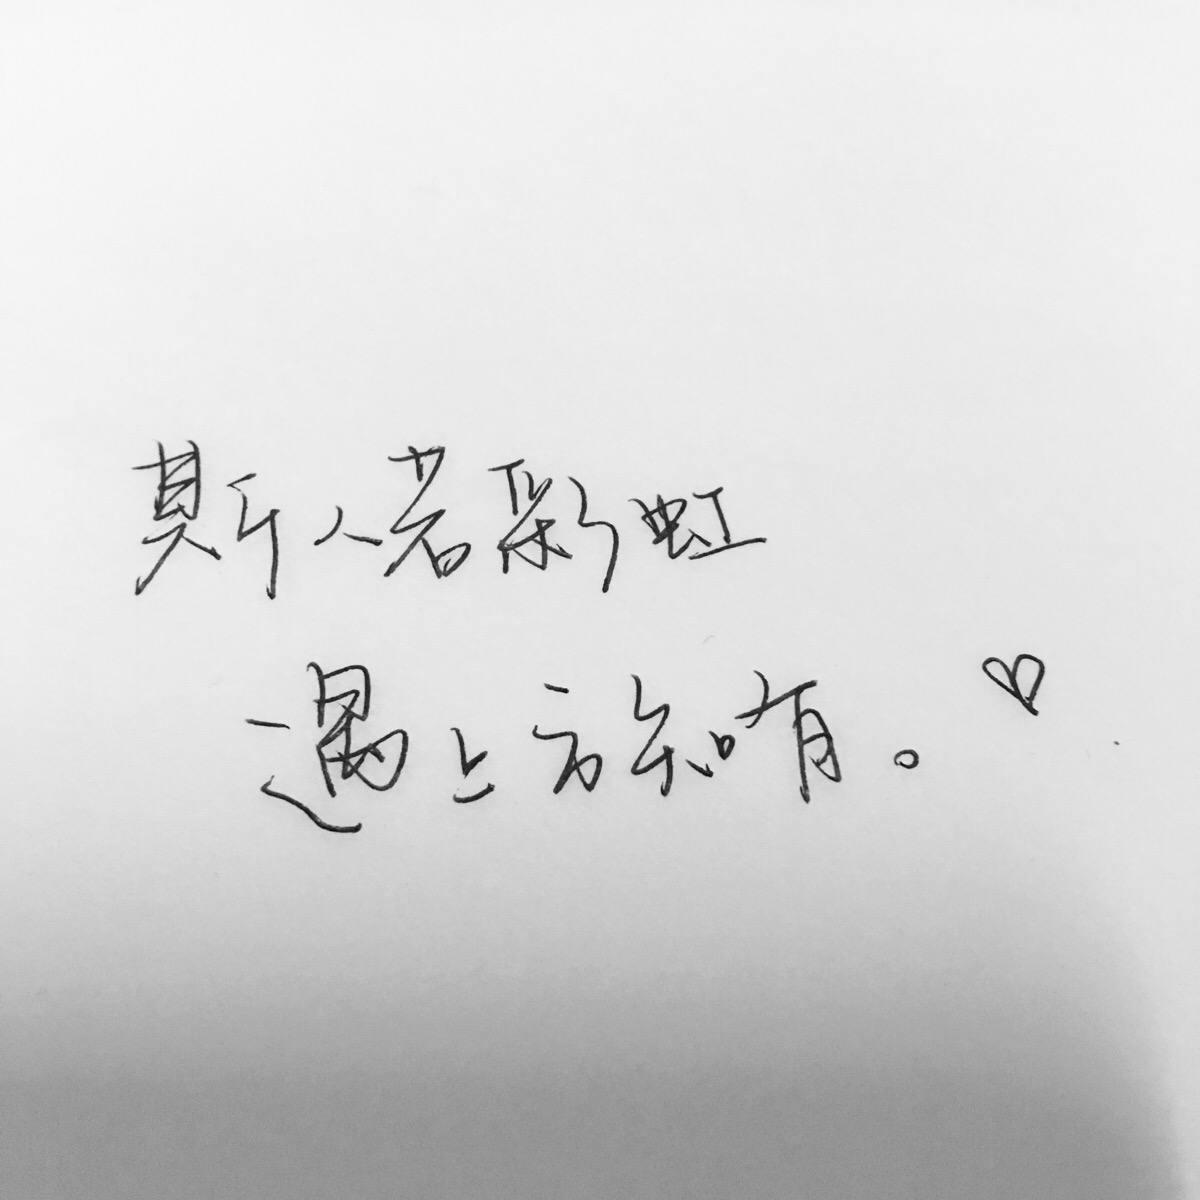 斯人若彩虹
遇上方知有。